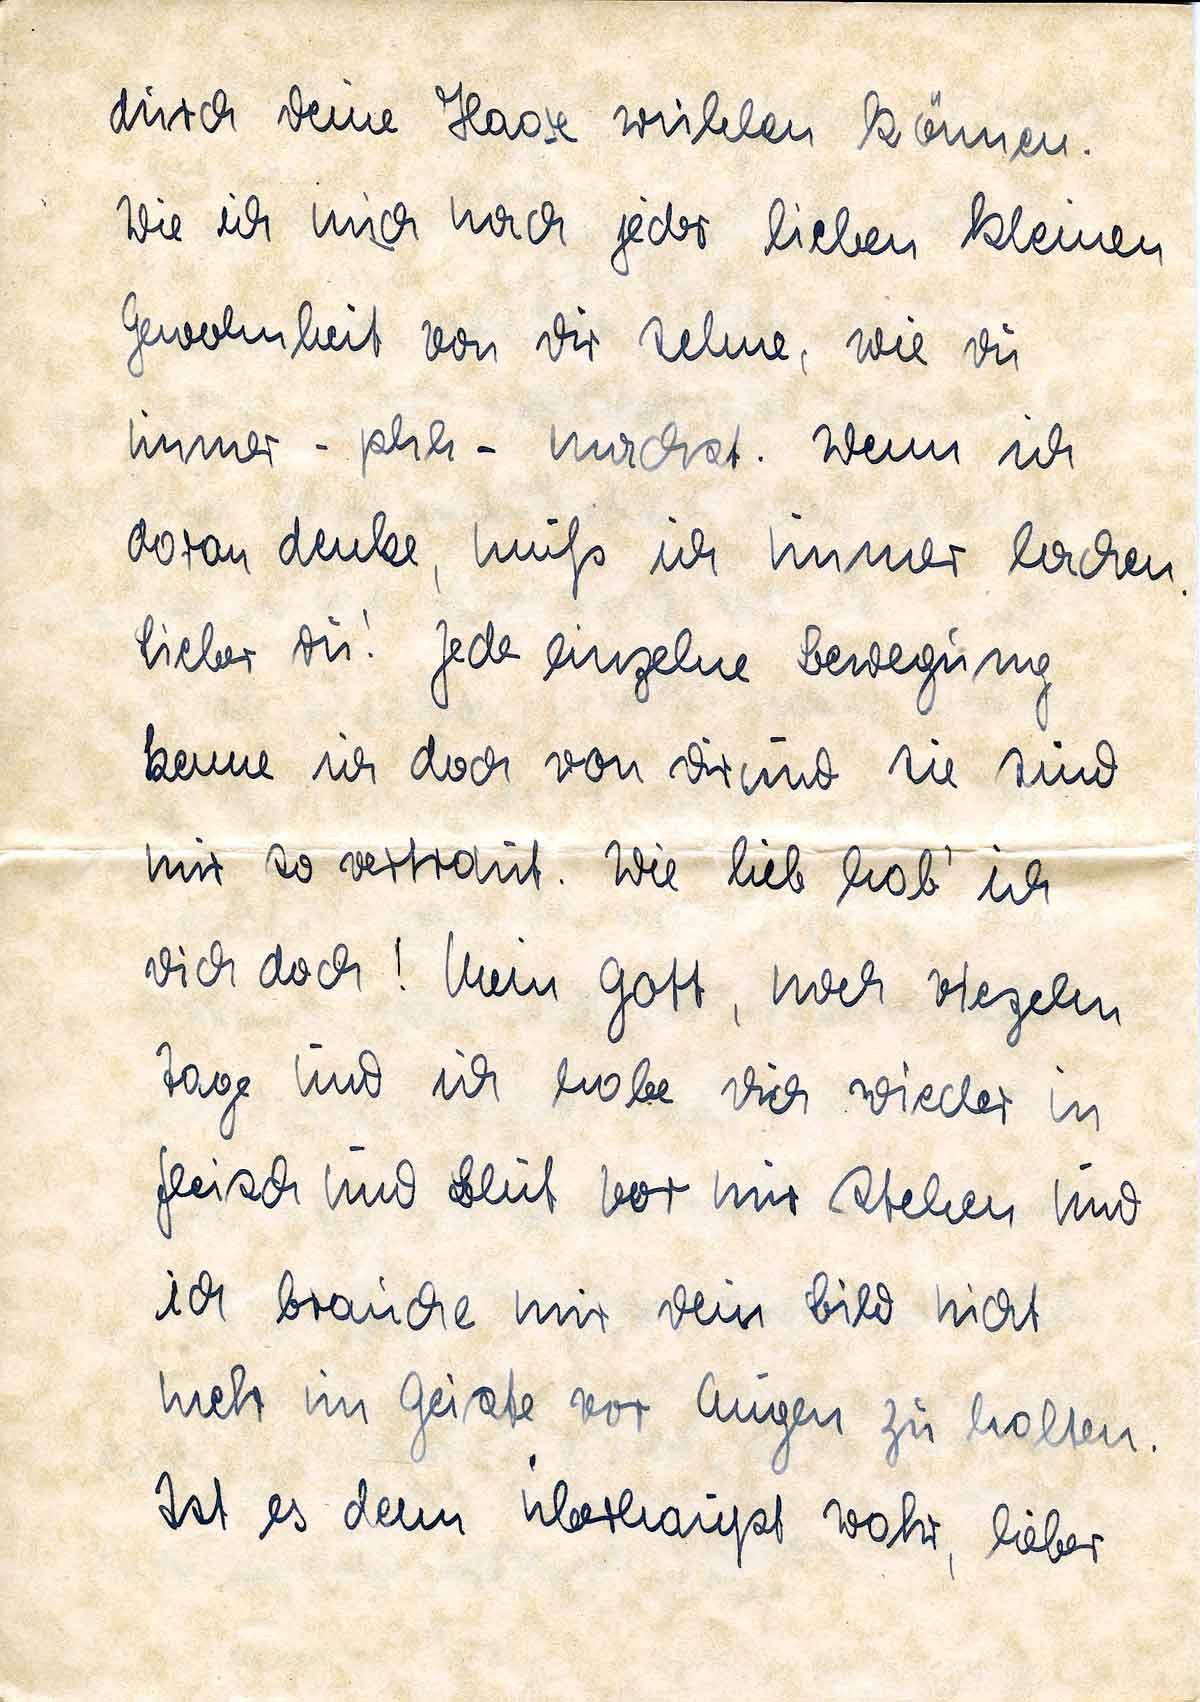 durch deine Haare wühlen können.
Wie ich mich nach jeder lieben kleinen
Gewohnheit von dir sehne, wie du
immer - phh - machst. Wenn ich
daran denke, muß ich immer lachen.
Lieber du! Jede einzelne Bewegung
kenne ich doch von dir, und sie sind
mir so vertraut. Wie lieb hab' ich
dich doch! Mein Gott, noch vierzehn
Tage und ich habe dich wieder in
Fleisch und Blut vor mir stehen und
ich brauche mir dein Bild nicht
mehr im Geiste vor Augen zu halten.
Ist es denn überhaupt wahr, lieber